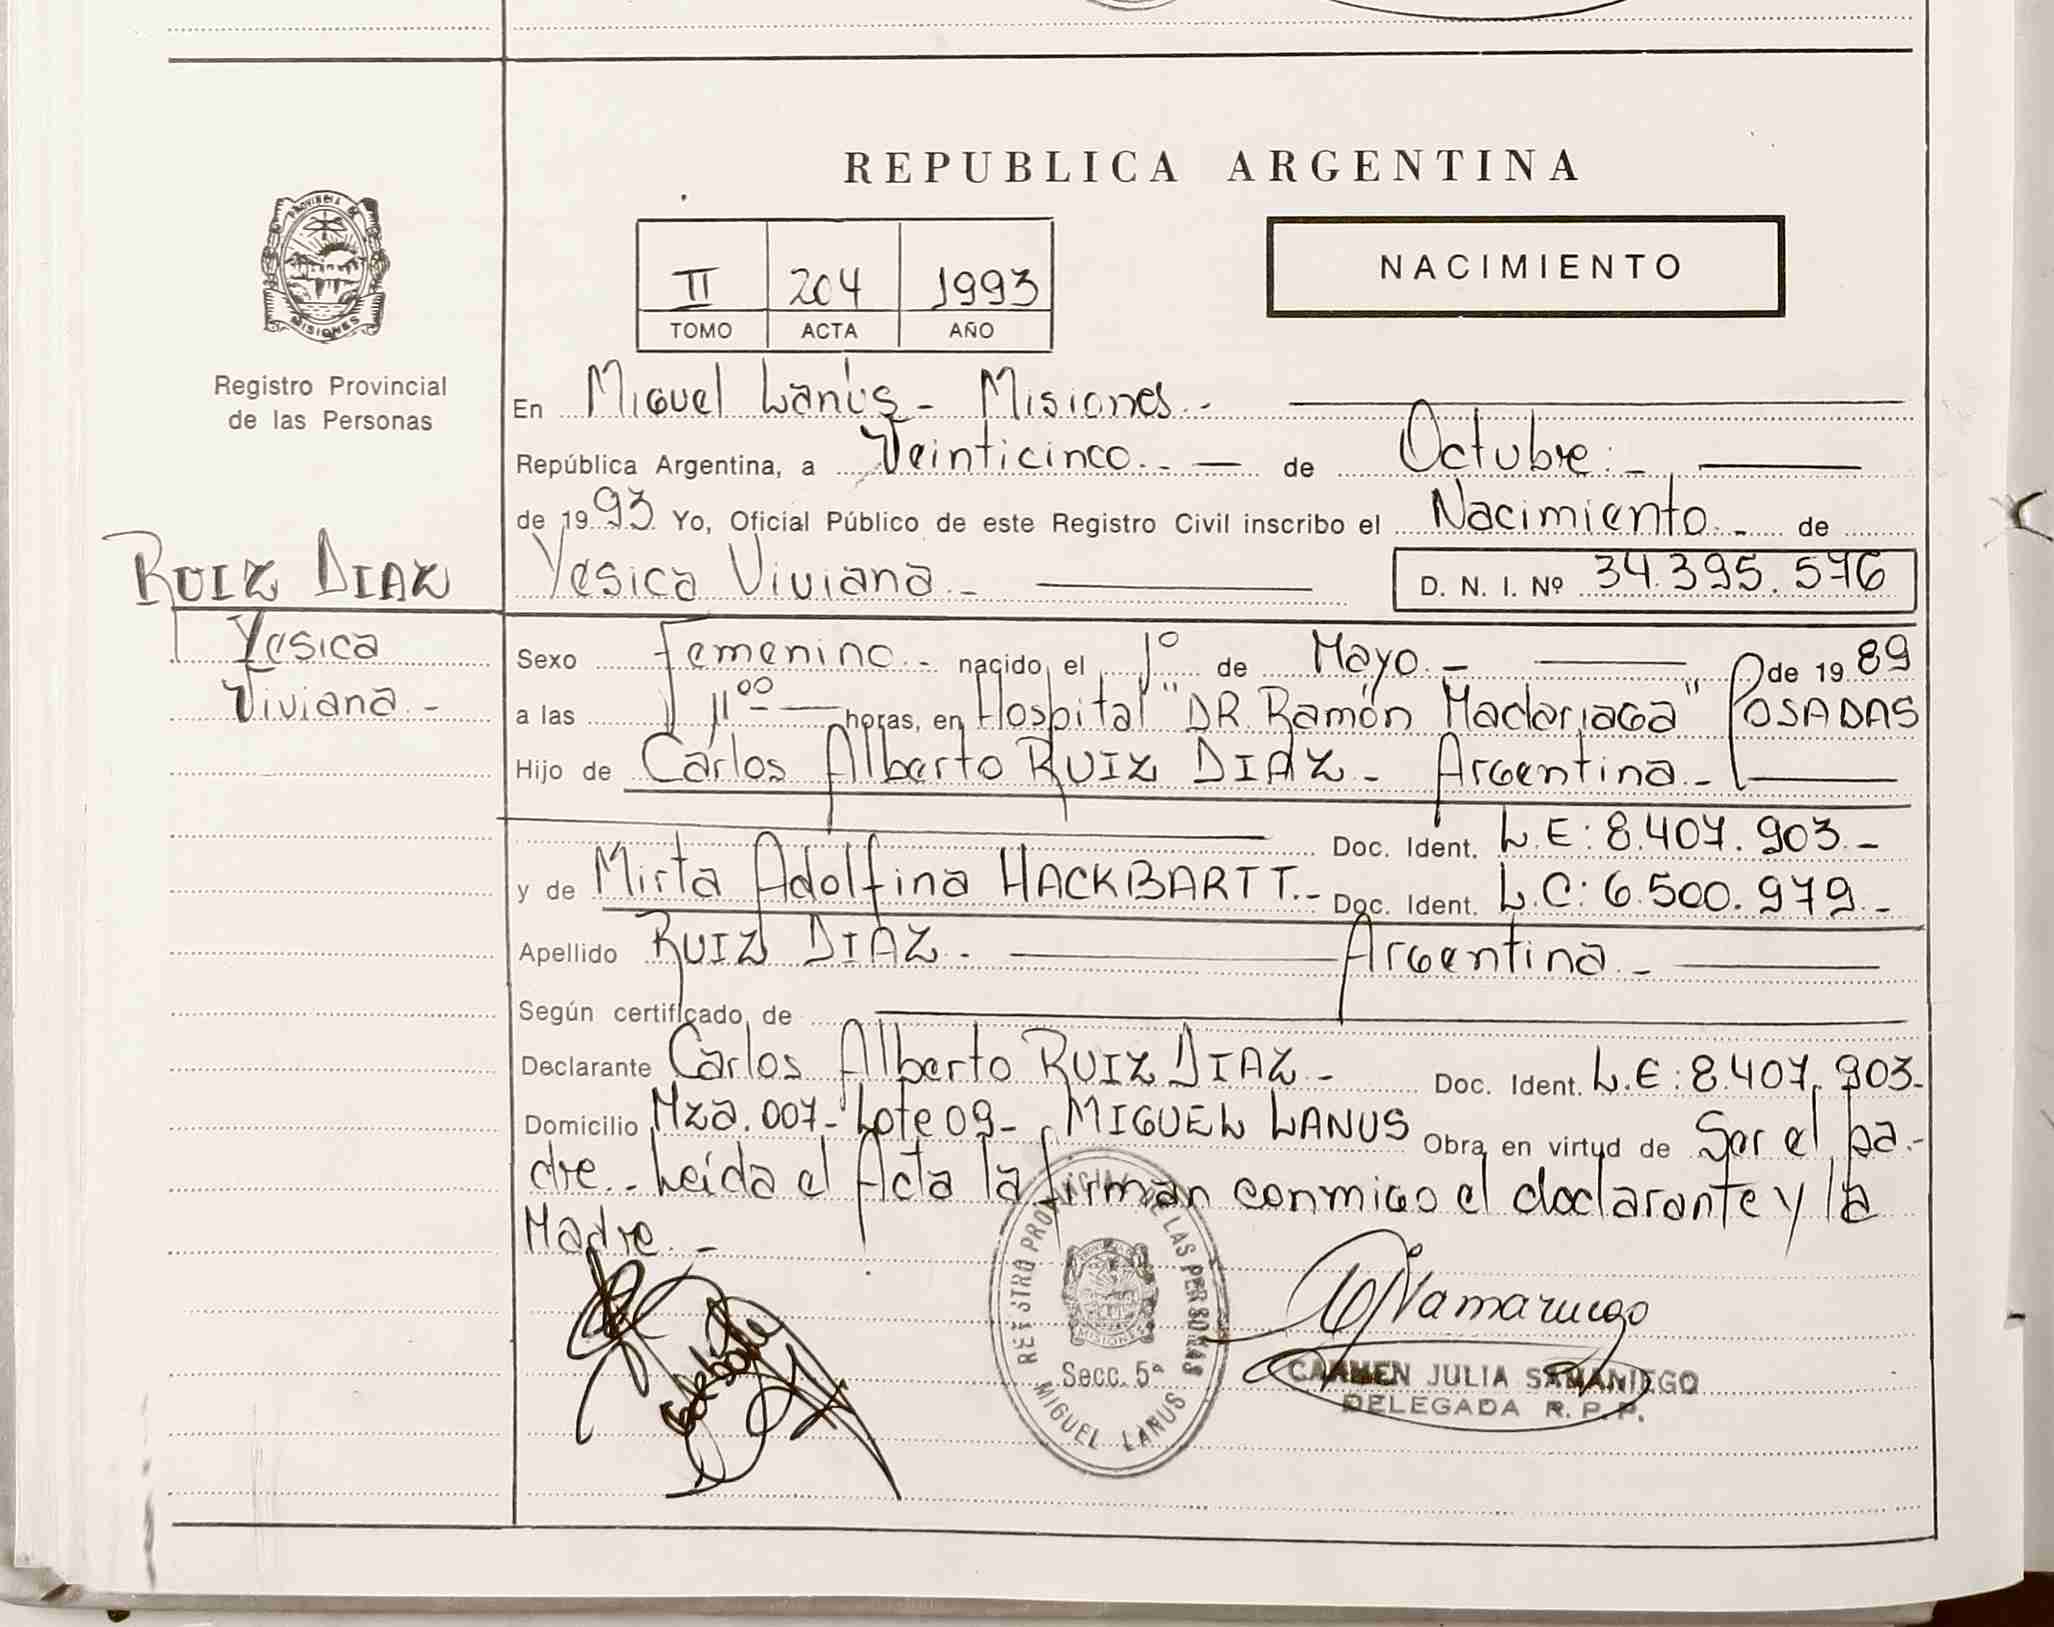 REPUBLICA ARGENTINA
PROVINCIA DE
MISIONES
Registro Provincial
de las Personas
II 204 1993
TOMO ACTA AÑO
NACIMIENTO
En Miguel Lanús - Misiones.-
República Argentina, a Veinticinco.- de Octubre.-
de 1993. Yo, Oficial Público de este Registro Civil inscribo el Nacimiento.- de
RUIZ DIAZ
Yesica
Viviana.-
Yesica Viviana.- D. N. I. Nº 34.395.576
Sexo Femenino.- nacido el 1º de Mayo.- de 1989
a las 11⁰⁰ horas, en Hospital "DR. Ramón Madariaga" POSADAS
Hijo de Carlos Alberto RUIZ DIAZ.- Argentina.-
Doc. Ident. L.E: 8.407.903.-
y de Mirta Adolfina HACKBARTT.- Doc. Ident. L.C: 6.500.979.-
Apellido RUIZ DIAZ.- Argentina.-
Según certificado de
Declarante Carlos Alberto RUIZ DIAZ.- Doc. Ident. L.E: 8.407.903.-
Domicilio Mza. 007- Lote 09- MIGUEL LANUS Obra en virtud de Ser el pa-
dre.- Leída el Acta la firman conmigo el declarante y la
Madre.-
REGISTRO PROVINCIAL DE LAS PERSONAS
MISIONES
Secc. 5ª
MIGUEL LANUS
CARMEN JULIA SAMANIEGO
DELEGADA R. P. P.